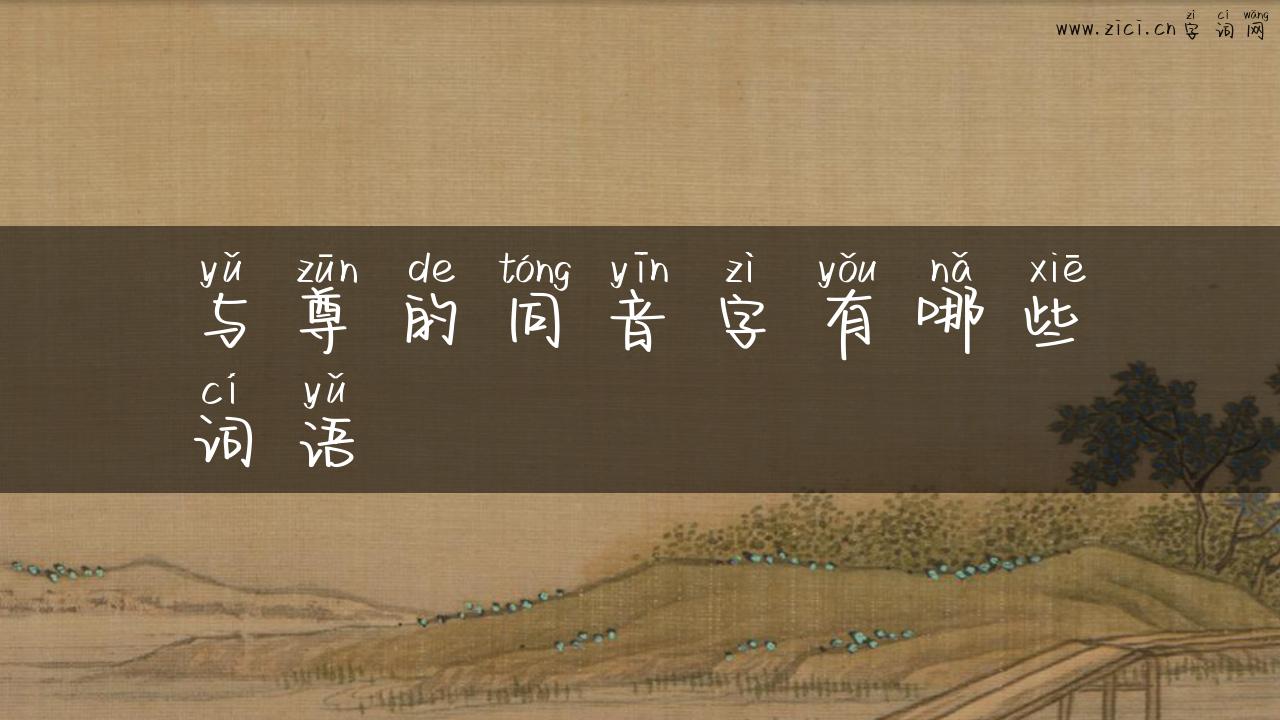 zì cí wǎng
www.zici.cn字词网
yǔ zūn de tóng yīn zì yǒu nǎ xiē
与尊的同音字有哪些
cí yǔ
词语